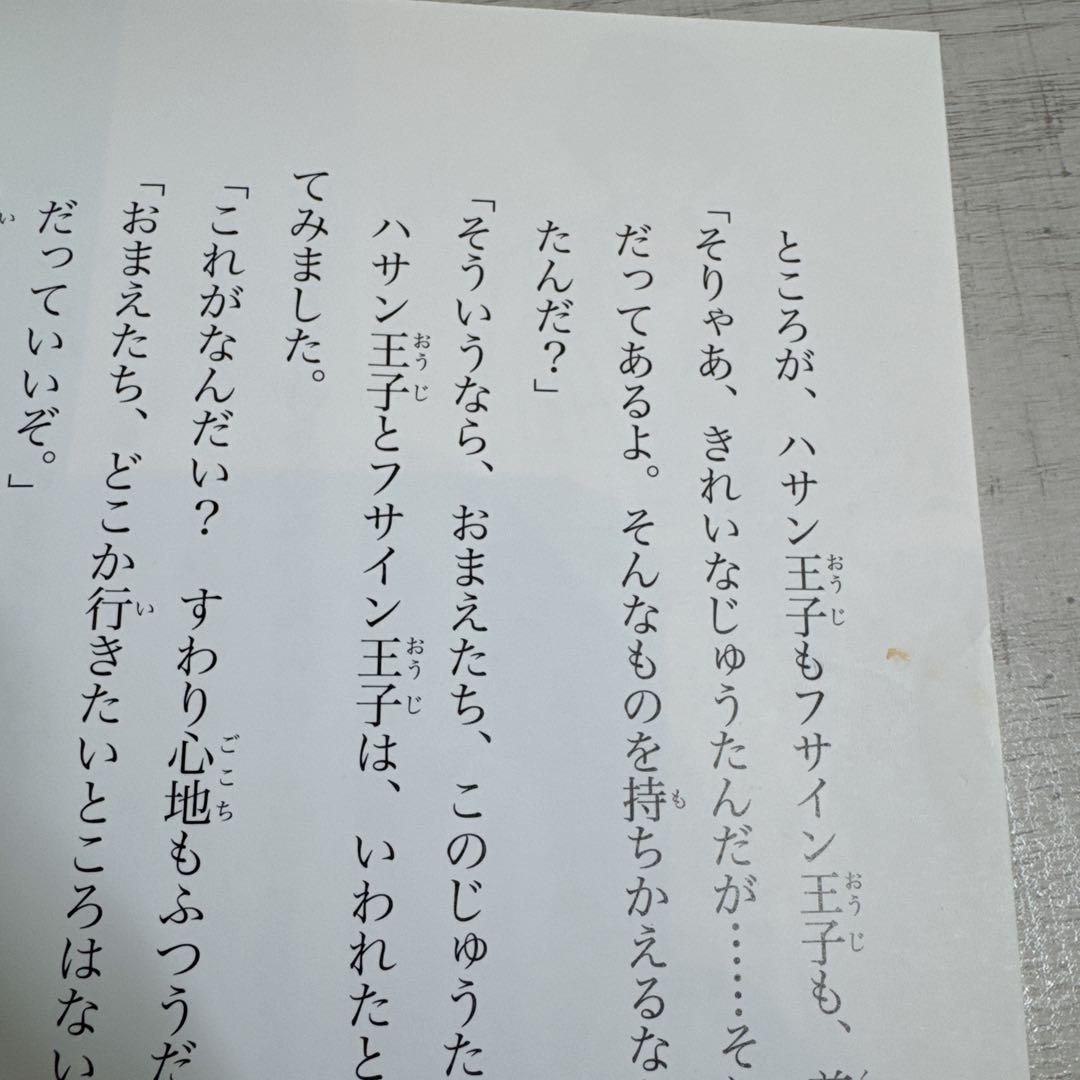 ところが、ハサン王子もフサイン王子も、
「そりゃあ、きれいなじゅうたんだが……そ
だってあるよ。そんなものを持ちかえるな
たんだ？」
「そういうなら、おまえたち、このじゅうた
ハサン王子とフサイン王子は、いわれたと
てみました。
「これがなんだい？　すわり心地もふつうだ
「おまえたち、どこか行きたいところはない
だっていいぞ。」